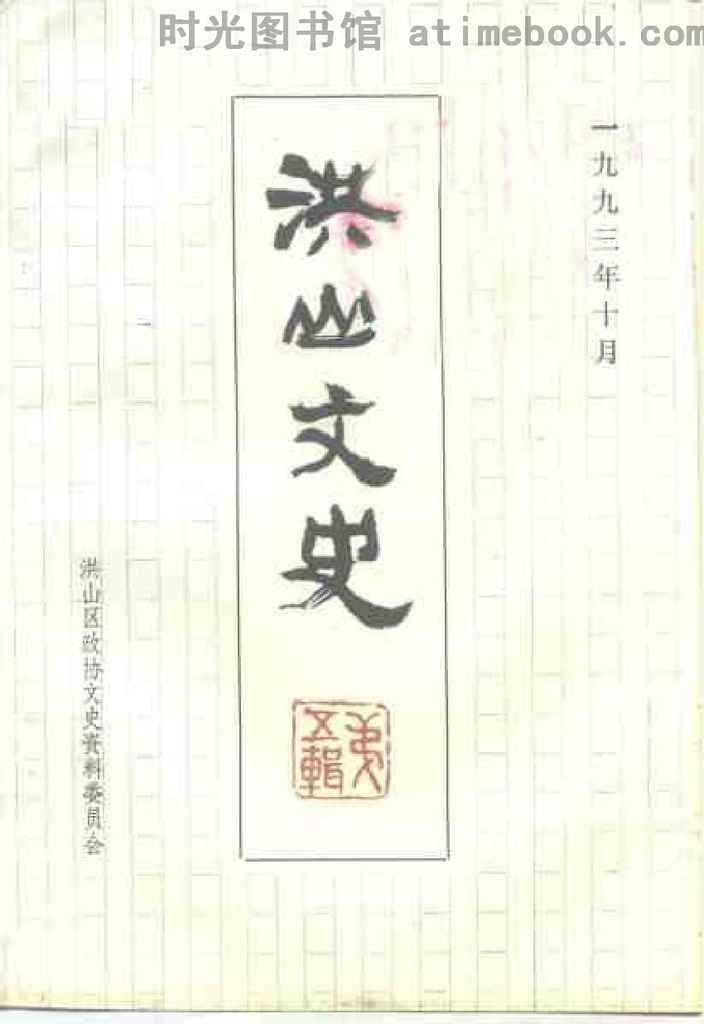 时光图书馆 atimebook.com
一九九三年十月
洪山文史
第五輯
洪山区政协文史资料委员会